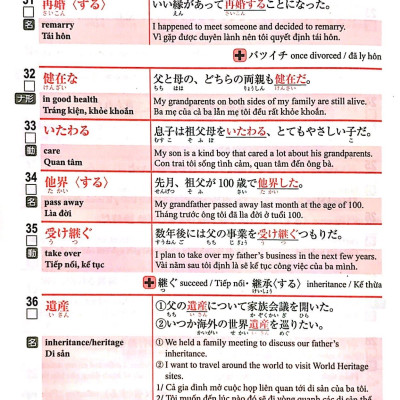 31 再婚〈する〉 いい縁があって再婚することになった。
さいこん えん
名 remarry I happened to meet someone and decided to remarry.
Tái hôn Vì gặp được duyên lành nên tôi quyết định tái hôn.
バツイチ once divorced / đã ly hôn
32 健在な 父と母の、どちらの両親も健在だ。
けんざい ちち はは りょうしん けんざい
ナ形 in good health My grandparents on both sides of my family are still alive.
Tráng kiện, khỏe khoắn Ba mẹ của cả ba lẫn mẹ tôi đều rất khỏe khoắn.
33 いたわる 息子は祖父母をいたわる、とてもやさしい子だ。
むすこ そふぼ こ
動 care My son is a kind boy that cared a lot about his grandparents.
Quan tâm Con trai tôi sống tình cảm, quan tâm đến ông bà.
34 他界〈する〉 先月、祖父が100歳で他界した。
たかい せんげつ そふ さい たかい
名 pass away My grandfather passed away last month at the age of 100.
Lìa đời Tháng trước ông tôi đã lìa đời ở tuổi 100.
35 受け継ぐ 数年後には父の事業を受け継ぐつもりだ。
う つ すうねんご ちち じぎょう う つ
動 take over I plan to take over my father's business in the next few years.
Tiếp nối, kế tục Vài năm sau tôi định là sẽ kế tục công việc của ba mình.
継ぐ succeed / Tiếp nối・継承〈する〉 inheritance / Kế thừa
つ けいしょう
36 遺産 ①父の遺産について家族会議を開いた。
いさん ちち いさん かぞくかいぎ ひら
②いつか海外の世界遺産を巡りたい。
かいがい せかいいさん めぐ
名 inheritance/heritage ① We held a family meeting to discuss our father's
Di sản inheritance.
② I want to travel around the world to visit World Heritage
sites.
1/ Cả gia đình mở cuộc họp liên quan tới di sản của ba tôi.